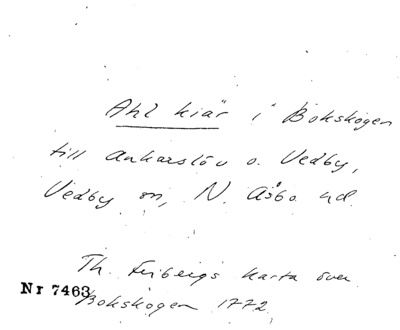 Ahl kiär i Bokskogen
till Ankarslöv o. Vedby,
Vedby sn, N. Åsbo hd.
Th. Fribergs karta över
Nr 7463
Bokskogen 1772.